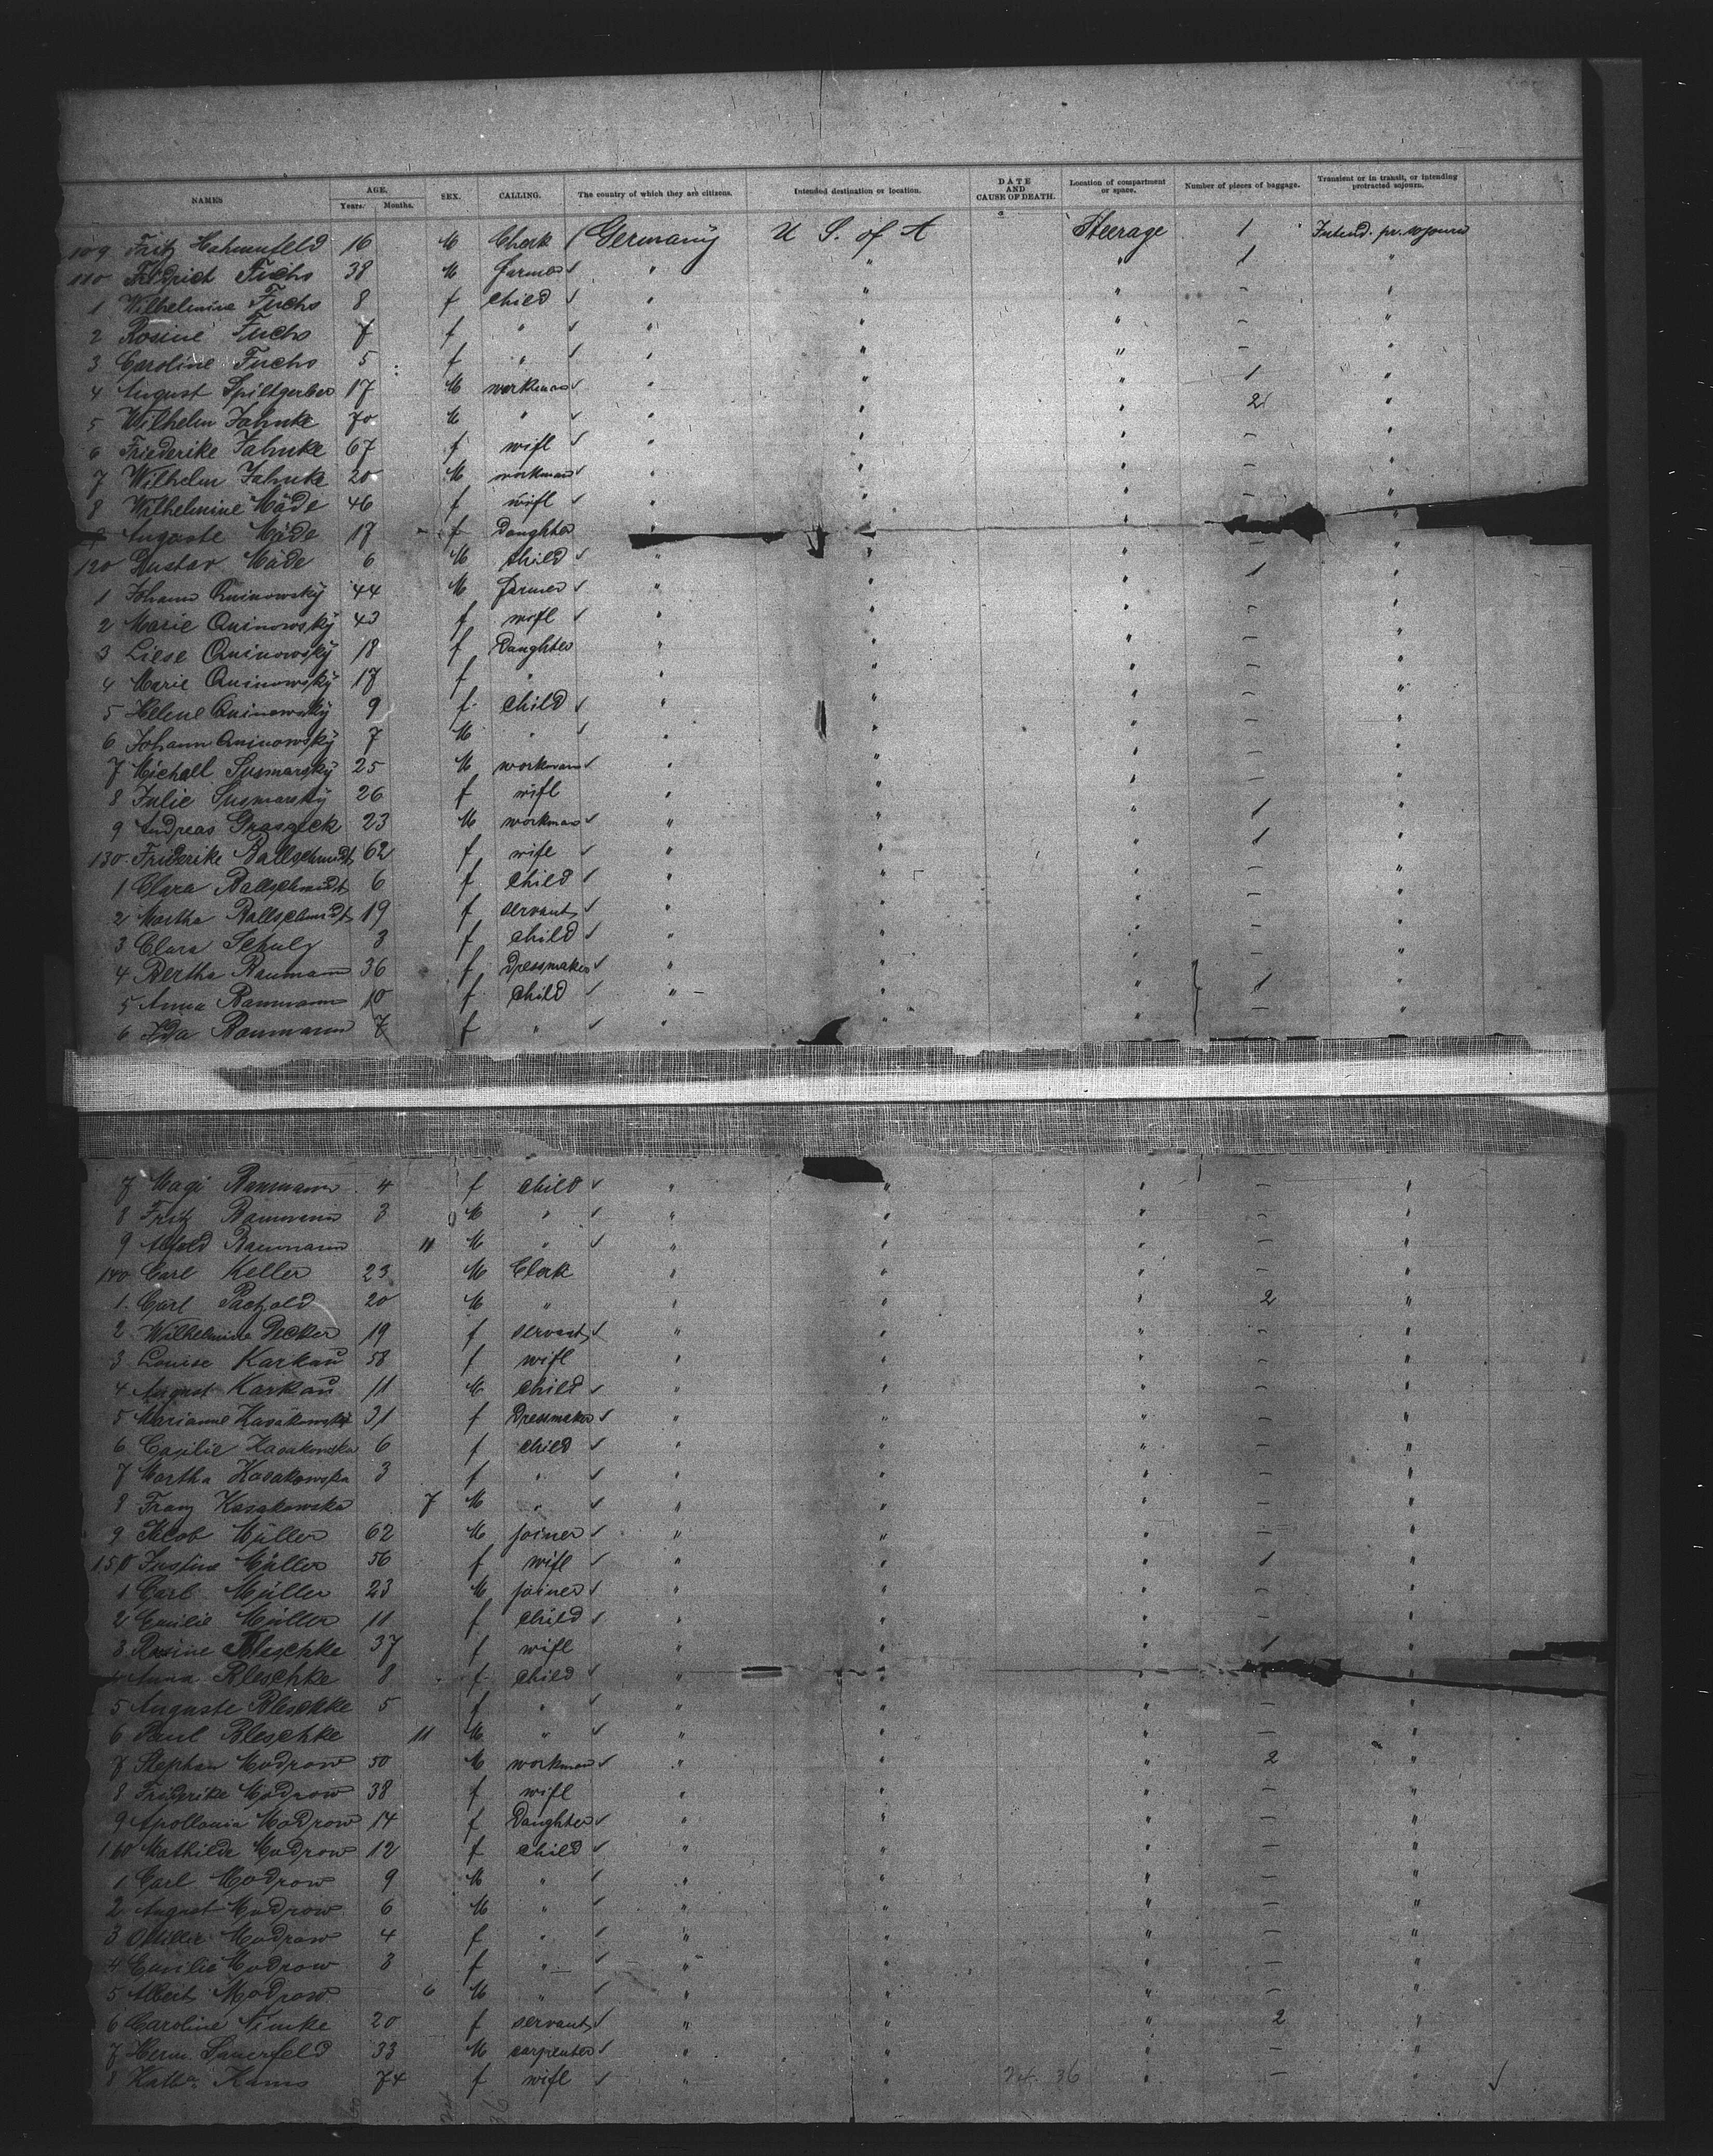 NAMES AGE, Years. Months. SEX. CALLING. The country of which they are citizens. Intended destination or location. DATE AND CAUSE OF DEATH. Location of compartment or space. Number of pieces of baggage. Transient or in transit, or intending protracted sojourn.
109 Fritz Hahnenfeld 16 M Clerk Germany U S. of A Steerage 1 Intend. pr. sojourn
110 Friedrich Fuchs 38 M farmer " " " 1 "
1 Wilhelmine Fuchs 8 f child " " " - "
2 Rosine Fuchs 7 f " " " " - "
3 Caroline Fuchs 5 f " " " " - "
4 August Spiltgerber 17 M workman " " " 1 "
5 Wilhelm Jahnke 70 M " " " " 2 "
6 Friederike Jahnke 67 f wife " " " - "
7 Wilhelm Jahnke 20 M workman " " " - "
8 Wilhelmine Mäde 46 f wife " " " - "
9 Auguste Mäde 17 f Daughter " " " "
120 Gustav Mäde 6 M child " " " - "
1 Johann Quinowsky 44 M farmer " " " 1 "
2 Marie Quinowsky 43 f wife " " " - "
3 Liese Quinowsky 18 f Daughter " " " - "
4 Marie Quinowsky 17 f " " " " - "
5 Helene Quinowsky 9 f child " " " - "
6 Johann Quinowsky 7 M " " " " - "
7 Michael Susmarsky 25 M workman " " " - "
8 Julie Susmarsky 26 f wife " " " - "
9 Andreas Graszeck 23 M workman " " " 1 "
130 Friderike Ballschmidt 62 f wife " " " 1 "
1 Clara Ballschmidt 6 f child " " " - "
2 Martha Ballschmidt 19 f servant " " " - "
3 Clara Schulz 3 f child " " " - "
4 Bertha Baumann 36 f Dressmaker " " " - "
5 Anna Baumann 10 f child " " " 1 "
6 Ida Baumann 7 f " " " " - "
7 Magi Baumann 4 f child " " " - "
8 Fritz Baumann 3 M " " " " - "
9 Alfold Baumann 11 M " " " " - "
140 Carl Keller 23 M Clerk " " " - "
1 Carl Pachold 20 M " " " " 2 "
2 Wilhelmine Decker 19 f servant " " " - "
3 Louise Karkau 58 f wife " " " - "
4 August Karkau 11 M child " " " - "
5 Marianne Kasakowska 31 f Dressmaker " " " - "
6 Casilie Kasakowska 6 f child " " " - "
7 Martha Kasakowska 3 f " " " " - "
8 Franz Kasakowska 7 M " " " " - "
9 Jacob Müller 62 M joiner " " " - "
150 Justine Müller 56 f wife " " " 1 "
1 Carl Müller 23 M joiner " " " - "
2 Emilie Müller 11 f child " " " - "
3 Rosine Bleschke 37 f wife " " " 1 "
4 Anna Bleschke 8 f child " " " "
5 Auguste Bleschke 5 f " " " " - "
6 Paul Bleschke 11 M " " " " - "
7 Stephan Modrow 50 M workman " " " 2 "
8 Friderike Modrow 38 f wife " " " - "
9 Apollonia Modrow 14 f Daughter " " " - "
160 Mathilde Modrow 12 f child " " " - "
1 Carl Modrow 9 M " " " " - "
2 August Modrow 6 M " " " " - "
3 Ottilie Modrow 4 f " " " " - "
4 Emilie Modrow 3 f " " " " - "
5 Albert Modrow 6 M " " " " - "
6 Caroline Nimke 20 f servant " " " 2 "
7 Herm. Sauerfeld 33 M carpenter " " " - "
8 Kath. Kams 74 f wife " " 24 36 " - "